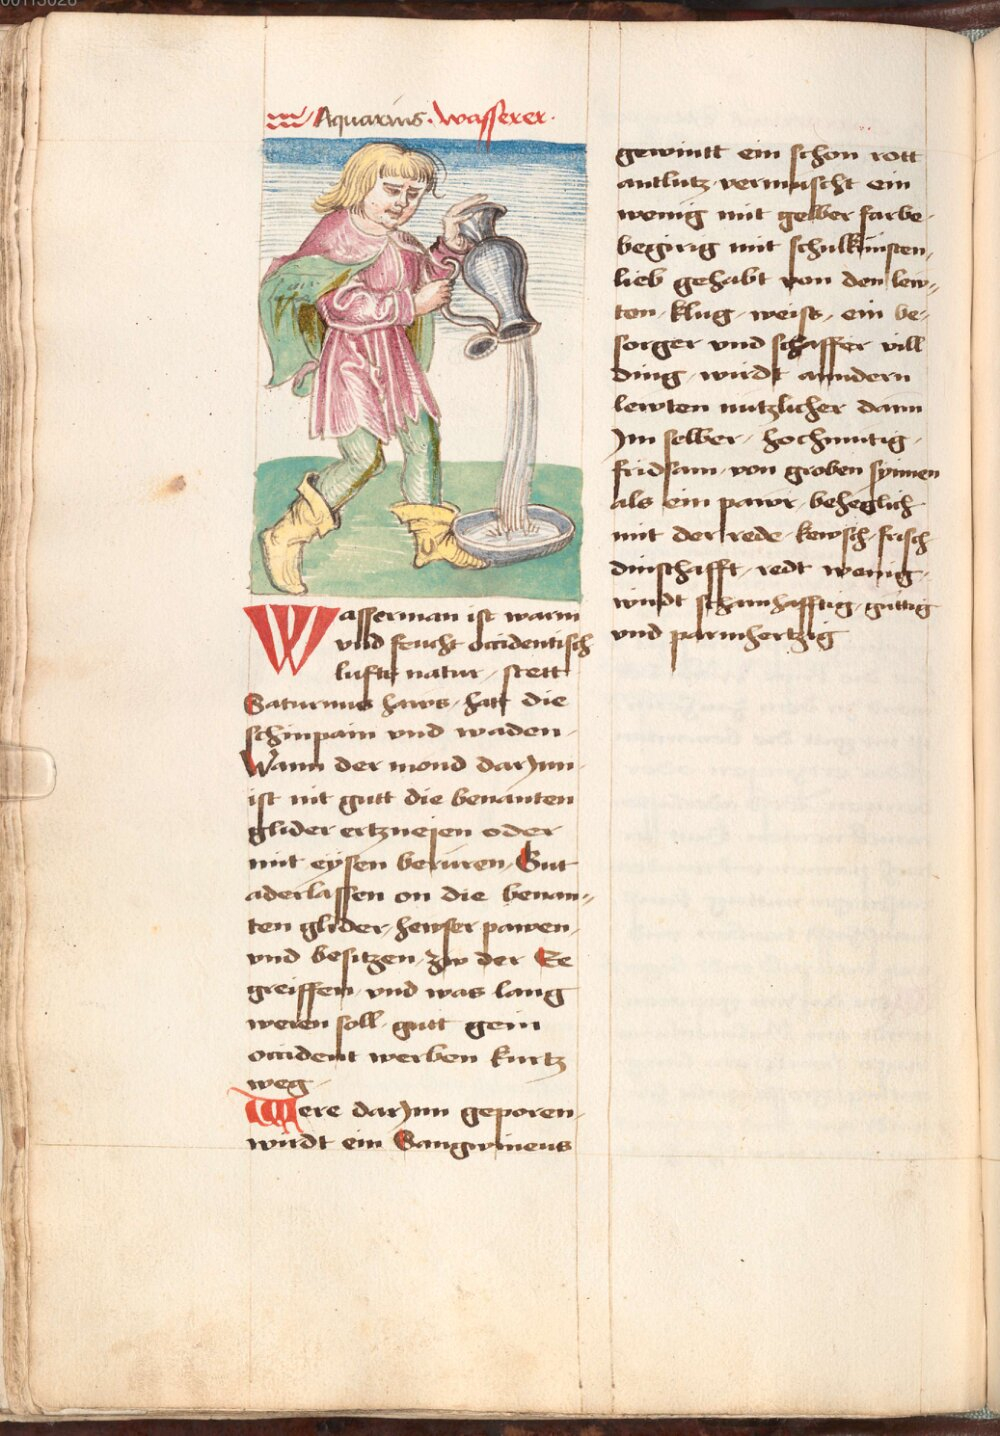 Aquarius · wasserer ·
Wasserman ist warm
vnd feucht occidentisch
luffts natur / stett
Saturnus haws / hatt die
schinpain vnd waden ·
Wann der mond darjnn
ist nit gutt die benanten
glider ertzneien oder
mit eysen berüren / Gut
aderlassen on die benan-
ten glider / hewser pawen /
vnd besitzen / zw der Ee
greiffen / vnd was lang
weren soll / gutt gein
occident werben kurtz
weg ·
Were darjnn geporen /
wirdt ein Sangwineus
gewintt ein schon rott
antlütz / vermuscht ein
wenig mit gelber farbe ·
begirig mit schulkunsten /
lieb gehabt von den lew-
ten / klug / weiss / ein be-
sorger vnd schaffer vill
ding / wirdt anndern
lewten nutzlicher dann
jm selber / hochmutig /
fridsam / von groben synnen
als ein pawr / beheglich
mit der rede / kewsch / frisch
dinschafft / redt wenig /
wirdt schamhafftig / güttig
vnd parmhertzig